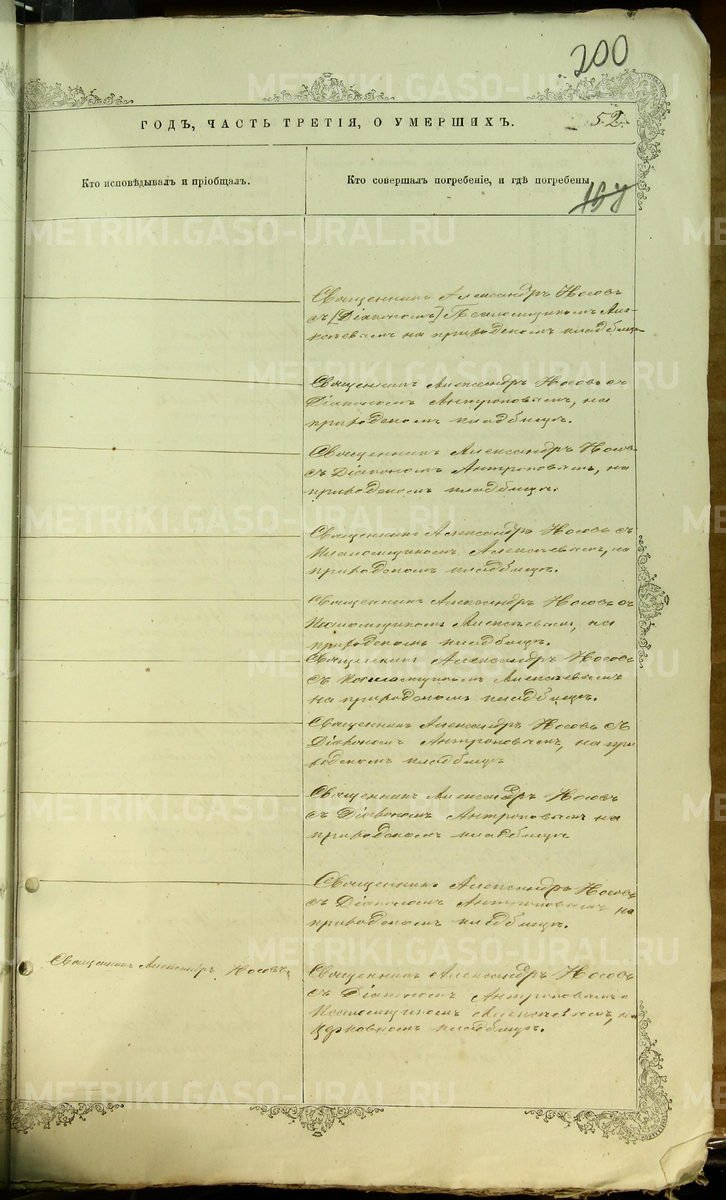 200
ГОДЪ, ЧАСТЬ ТРЕТІЯ, О УМЕРШИХЪ.
52.
Кто исповѣдывалъ и пріобщалъ.
Кто совершалъ погребеніе, и гдѣ погребены.
Священникъ Александръ Носовъ
съ [Діакономъ] Псаломщикомъ Але-
ксѣевымъ на приходскомъ кладбищѣ
Священникъ Александръ Носовъ съ
Діакономъ Антроповымъ, на
приходскомъ кладбищѣ.
Священникъ Александръ Носовъ
съ Діакономъ Антроповымъ, на
приходскомъ кладбищѣ.
Священникъ Александръ Носовъ съ
Псаломщикомъ Алексѣевымъ, на
приходскомъ кладбищѣ.
Священникъ Александръ Носовъ съ
Псаломщикомъ Алексѣевымъ, на
приходскомъ кладбищѣ.
Священникъ Александръ Носовъ
съ Псаломщикомъ Алексѣевымъ
на приходскомъ кладбищѣ.
Священникъ Александръ Носовъ съ
Діакономъ Антроповымъ, на при-
ходскомъ кладбищѣ
Священникъ Александръ Носовъ
съ Діакономъ Антроповымъ на
приходскомъ кладбищѣ
Священникъ Александръ Носовъ
съ Діакономъ Антроповымъ на
приходскомъ кладбищѣ.
Священникъ Александръ Носовъ,
Священникъ Александръ Носовъ
съ Діакономъ Антроповымъ и
Псаломщикомъ Алексѣевымъ, на
церковномъ кладбищѣ.
METRIKI.GASO-URAL.RU